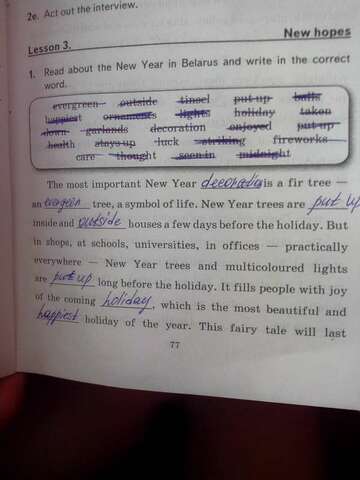 2e. Act out the interview.
Lesson 3. New hopes
1. Read about the New Year in Belarus and write in the correct
word.
evergreen outside tinsel put up balls
happiest ornaments lights holiday taken
down garlands decoration enjoyed put up
health stays up luck striking fireworks
care thought seen in midnight
The most important New Year decoration is a fir tree –
an evergeen tree, a symbol of life. New Year trees are put up
inside and outside houses a few days before the holiday. But
in shops, at schools, universities, in offices — practically
everywhere — New Year trees and multicoloured lights
are put up long before the holiday. It fills people with joy
of the coming holiday, which is the most beautiful and
happiest holiday of the year. This fairy tale will last
77